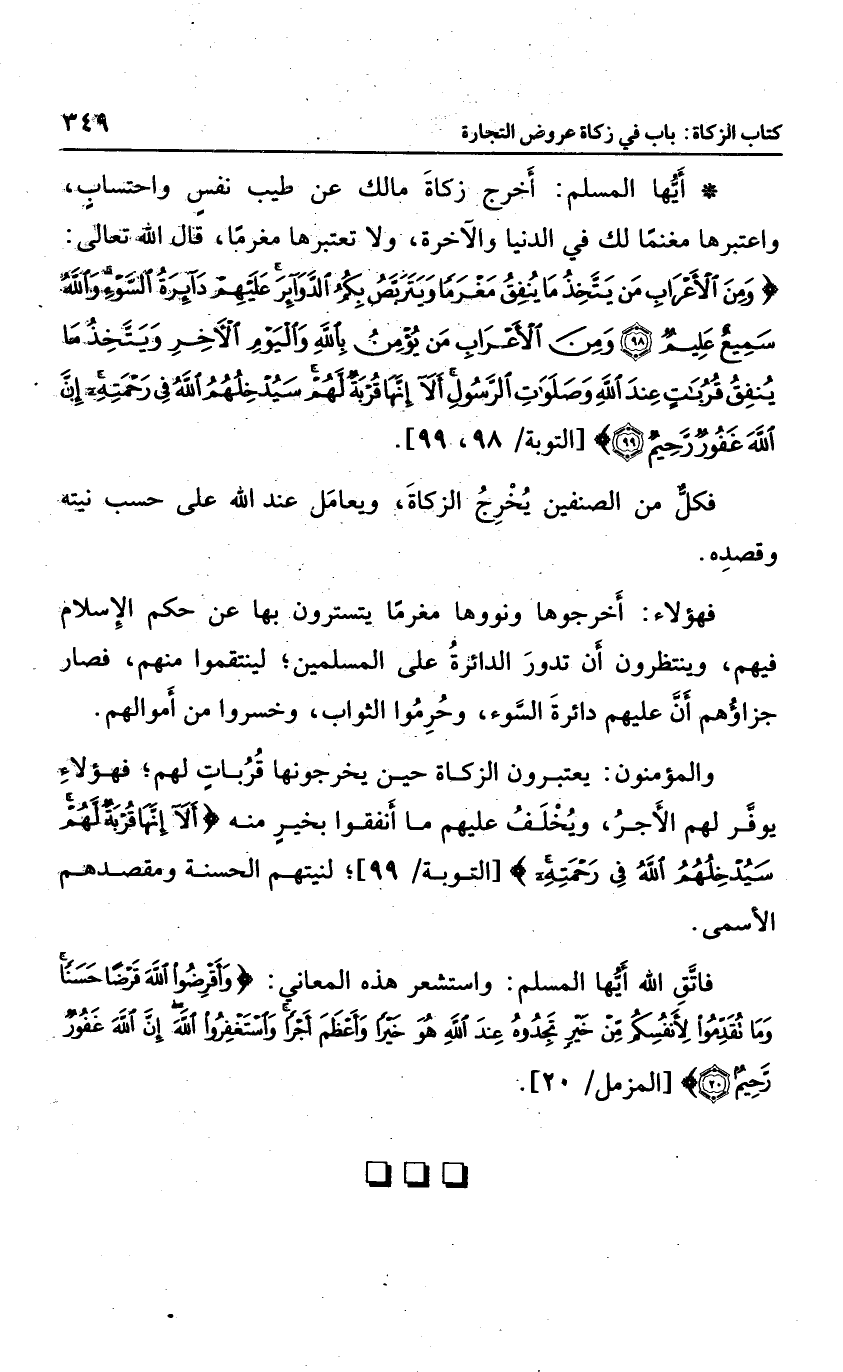 كتاب الزكاة: باب في زكاة عروض التجارة ٣٤٩
* أَيُّها المسلم: أَخرج زكاةَ مالك عن طيب نفسٍ واحتسابٍ،
واعتبرها مغنمًا لك في الدنيا والآخرة، ولا تعتبرها مغرمًا، قال الله تعالى:
﴿ وَمِنَ ٱلْأَعْرَابِ مَن يَتَّخِذُ مَا يُنفِقُ مَغْرَمًا وَيَتَرَبَّصُ بِكُمُ ٱلدَّوَآئِرَ ۚ عَلَيْهِمْ دَآئِرَةُ ٱلسَّوْءِ ۗ وَٱللَّهُ
سَمِيعٌ عَلِيمٌ ۝٩٨ وَمِنَ ٱلْأَعْرَابِ مَن يُؤْمِنُ بِٱللَّهِ وَٱلْيَوْمِ ٱلْآخِرِ وَيَتَّخِذُ مَا
يُنفِقُ قُرُبَـٰتٍ عِندَ ٱللَّهِ وَصَلَوَٰتِ ٱلرَّسُولِ ۚ أَلَآ إِنَّهَا قُرْبَةٌ لَّهُمْ ۚ سَيُدْخِلُهُمُ ٱللَّهُ فِى رَحْمَتِهِۦٓ ۗ إِنَّ
ٱللَّهَ غَفُورٌ رَّحِيمٌ ۝٩٩ ﴾ [التوبة/ ٩٨، ٩٩].
فكلٌّ من الصنفين يُخْرِجُ الزكاةَ، ويعامَل عند الله على حسب نيته
وقصدِه.
فهؤلاء: أَخرجوها ونووها مغرمًا يتسترون بها عن حكم الإِسلام
فيهم، وينتظرون أَن تدورَ الدائرةُ على المسلمين؛ لينتقموا منهم، فصار
جزاؤُهم أَنَّ عليهم دائرةَ السَّوء، وحُرِمُوا الثواب، وخسروا من أَموالهم.
والمؤمنون: يعتبرون الزكاة حين يخرجونها قُرُباتٍ لهم؛ فهؤلاءِ
يوفَّر لهم الأَجرُ، ويُخْلَفُ عليهم ما أَنفقوا بخيرٍ منه ﴿ أَلَآ إِنَّهَا قُرْبَةٌ لَّهُمْ ۚ
سَيُدْخِلُهُمُ ٱللَّهُ فِى رَحْمَتِهِۦٓ ﴾ [التوبة/ ٩٩]؛ لنيتهم الحسنة ومقصدهم
الأسمى.
فاتَّقِ الله أَيُّها المسلم: واستشعر هذه المعاني: ﴿ وَأَقْرِضُوا۟ ٱللَّهَ قَرْضًا حَسَنًا ۚ
وَمَا تُقَدِّمُوا۟ لِأَنفُسِكُم مِّنْ خَيْرٍ تَجِدُوهُ عِندَ ٱللَّهِ هُوَ خَيْرًا وَأَعْظَمَ أَجْرًا ۚ وَٱسْتَغْفِرُوا۟ ٱللَّهَ ۖ إِنَّ ٱللَّهَ غَفُورٌ
رَّحِيمٌ ۝٢٠ ﴾ [المزمل/ ٢٠].